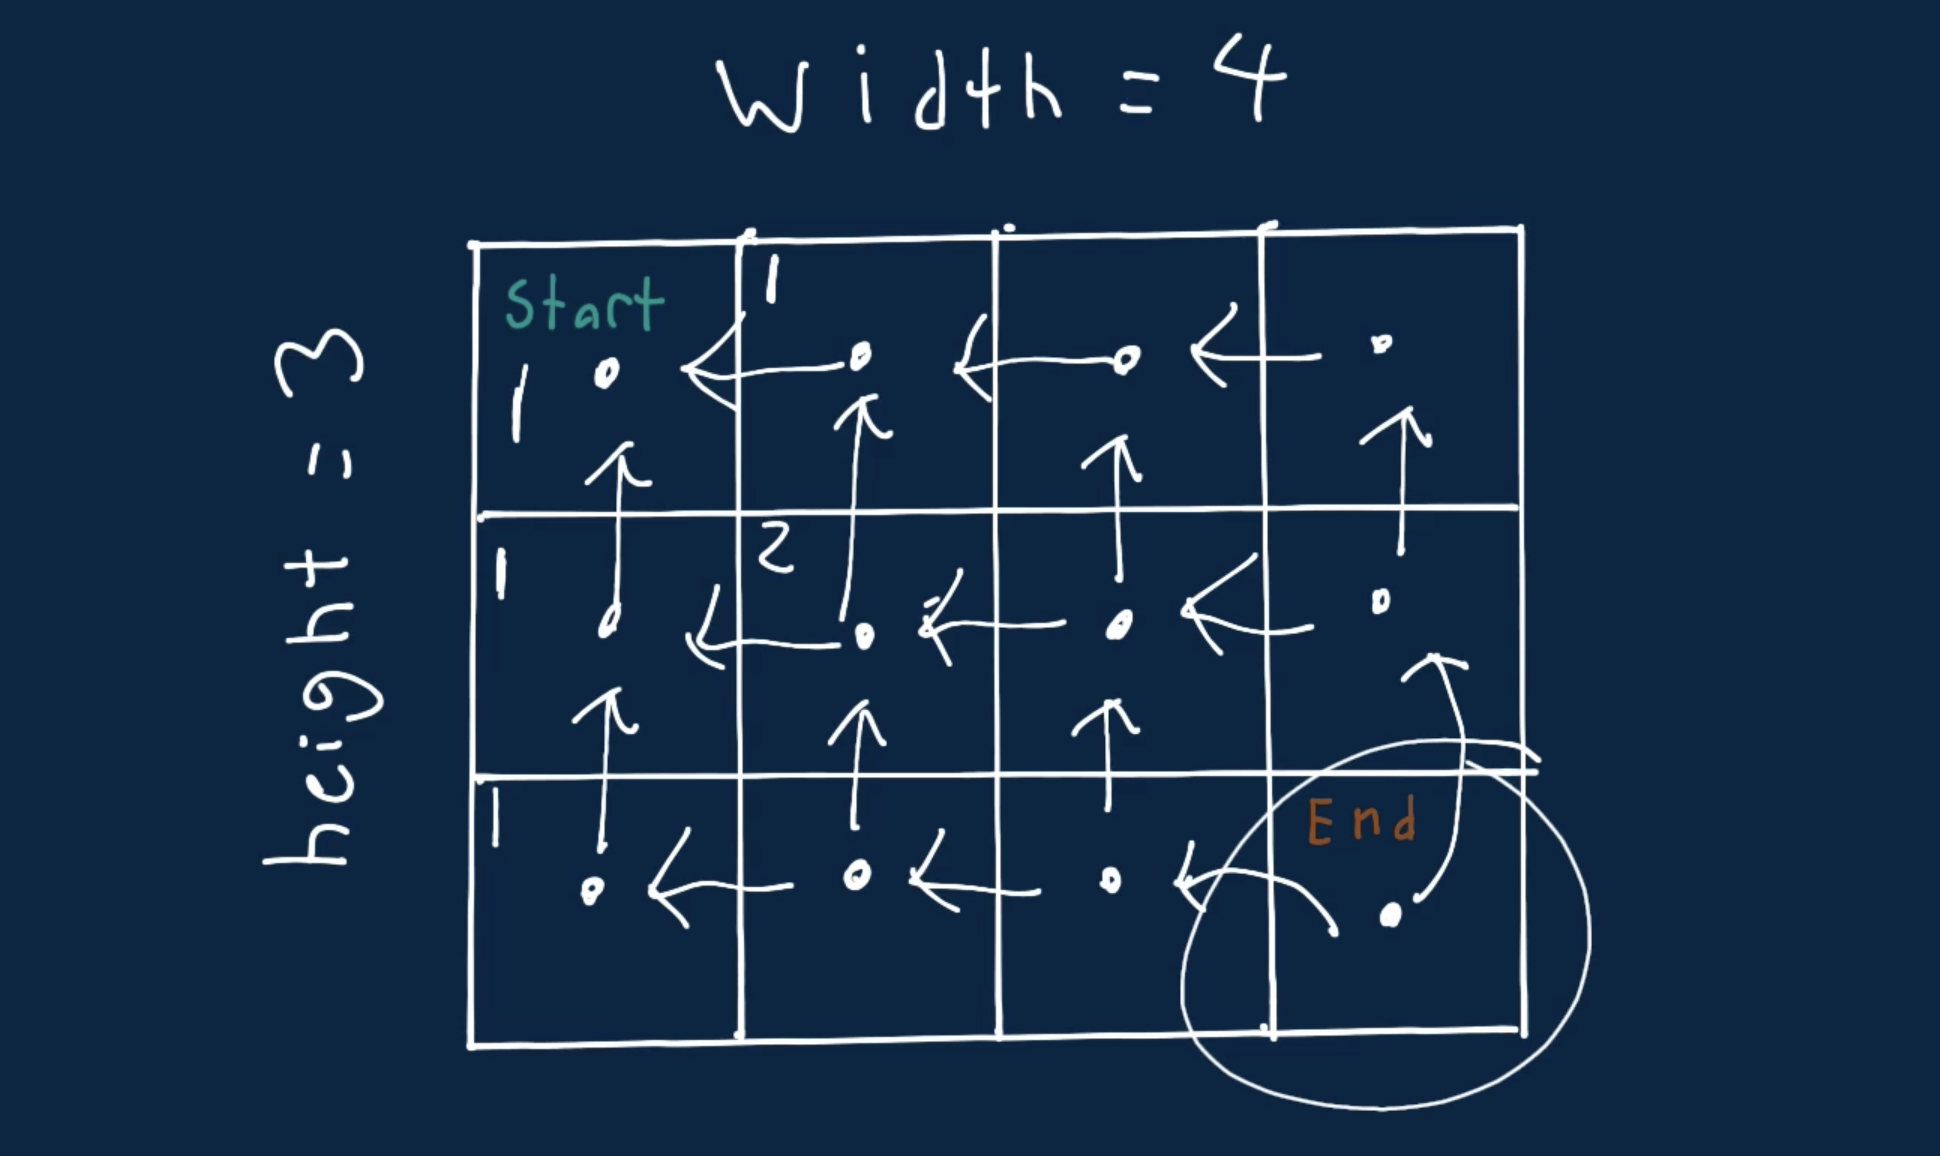 width = 4
height = 3
Start
1
1
1
2
1
End